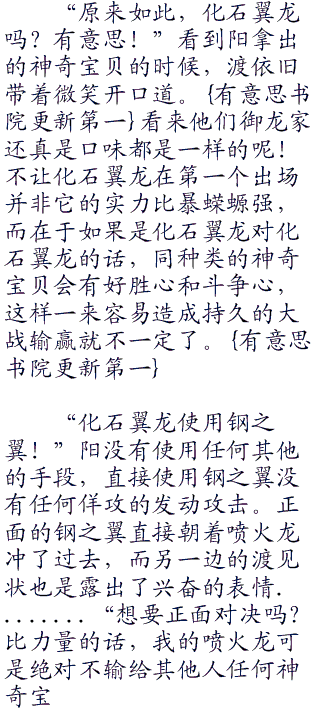 “原来如此，化石翼龙
吗？有意思！”看到阳拿出
的神奇宝贝的时候，渡依旧
带着微笑开口道。{有意思书
院更新第一}看来他们御龙家
还真是口味都是一样的呢！
不让化石翼龙在第一个出场
并非它的实力比暴蝾螈强，
而在于如果是化石翼龙对化
石翼龙的话，同种类的神奇
宝贝会有好胜心和斗争心，
这样一来容易造成持久的大
战输赢就不一定了。{有意思
书院更新第一}
“化石翼龙使用钢之
翼！”阳没有使用任何其他
的手段，直接使用钢之翼没
有任何佯攻的发动攻击。正
面的钢之翼直接朝着喷火龙
冲了过去，而另一边的渡见
状也是露出了兴奋的表情.
.......“想要正面对决吗？
比力量的话，我的喷火龙可
是绝对不输给其他人任何神
奇宝